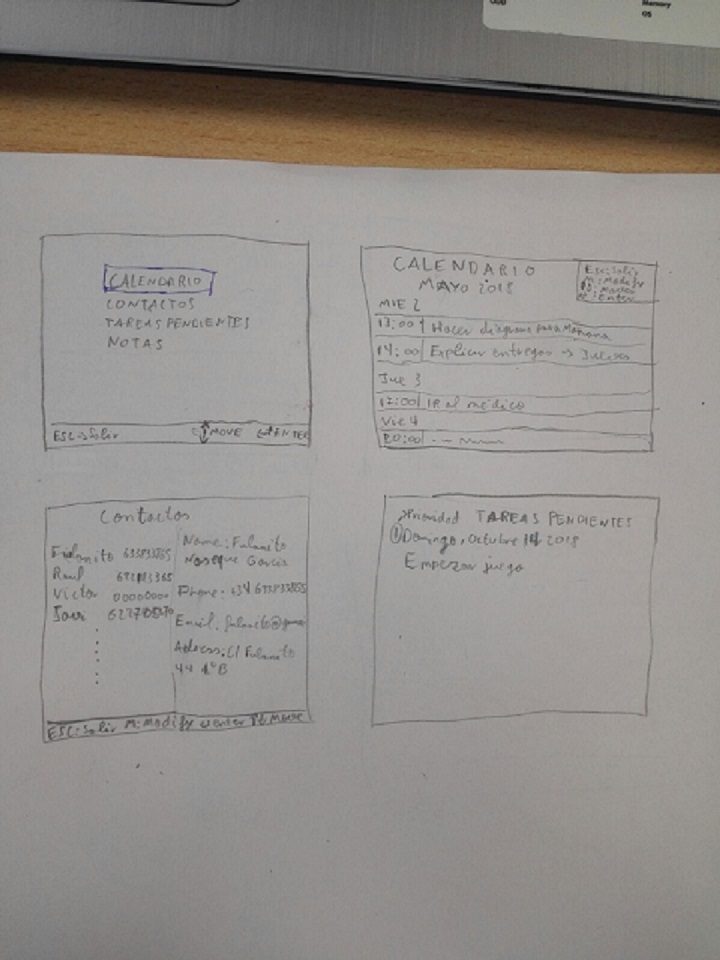 Memory
OS
CALENDARIO
CONTACTOS
TAREAS PENDIENTES
NOTAS
ESC: Salir
MOVE
ENTER
CALENDARIO
MAYO 2018
Esc: Salir
M: Modify
: Enter
MIE 2
13:00 Hacer diagrama para Mañana
14:00 Explicar entregas → Jueves
Jue 3
12:00 IR al médico
Vie 4
20:00
Contactos
Fulanito
Raul
Victor 00000000
Javi
Name: Fulanito
Noseque Garcia
Phone: +34
Email: fulanito@gmai
Adress: C/ Fulanito
44 1ºB
ESC: Salir M: Modify enter Move
Prioridad TAREAS PENDIENTES
① Domingo, Octubre 14 2018
Empezar juego